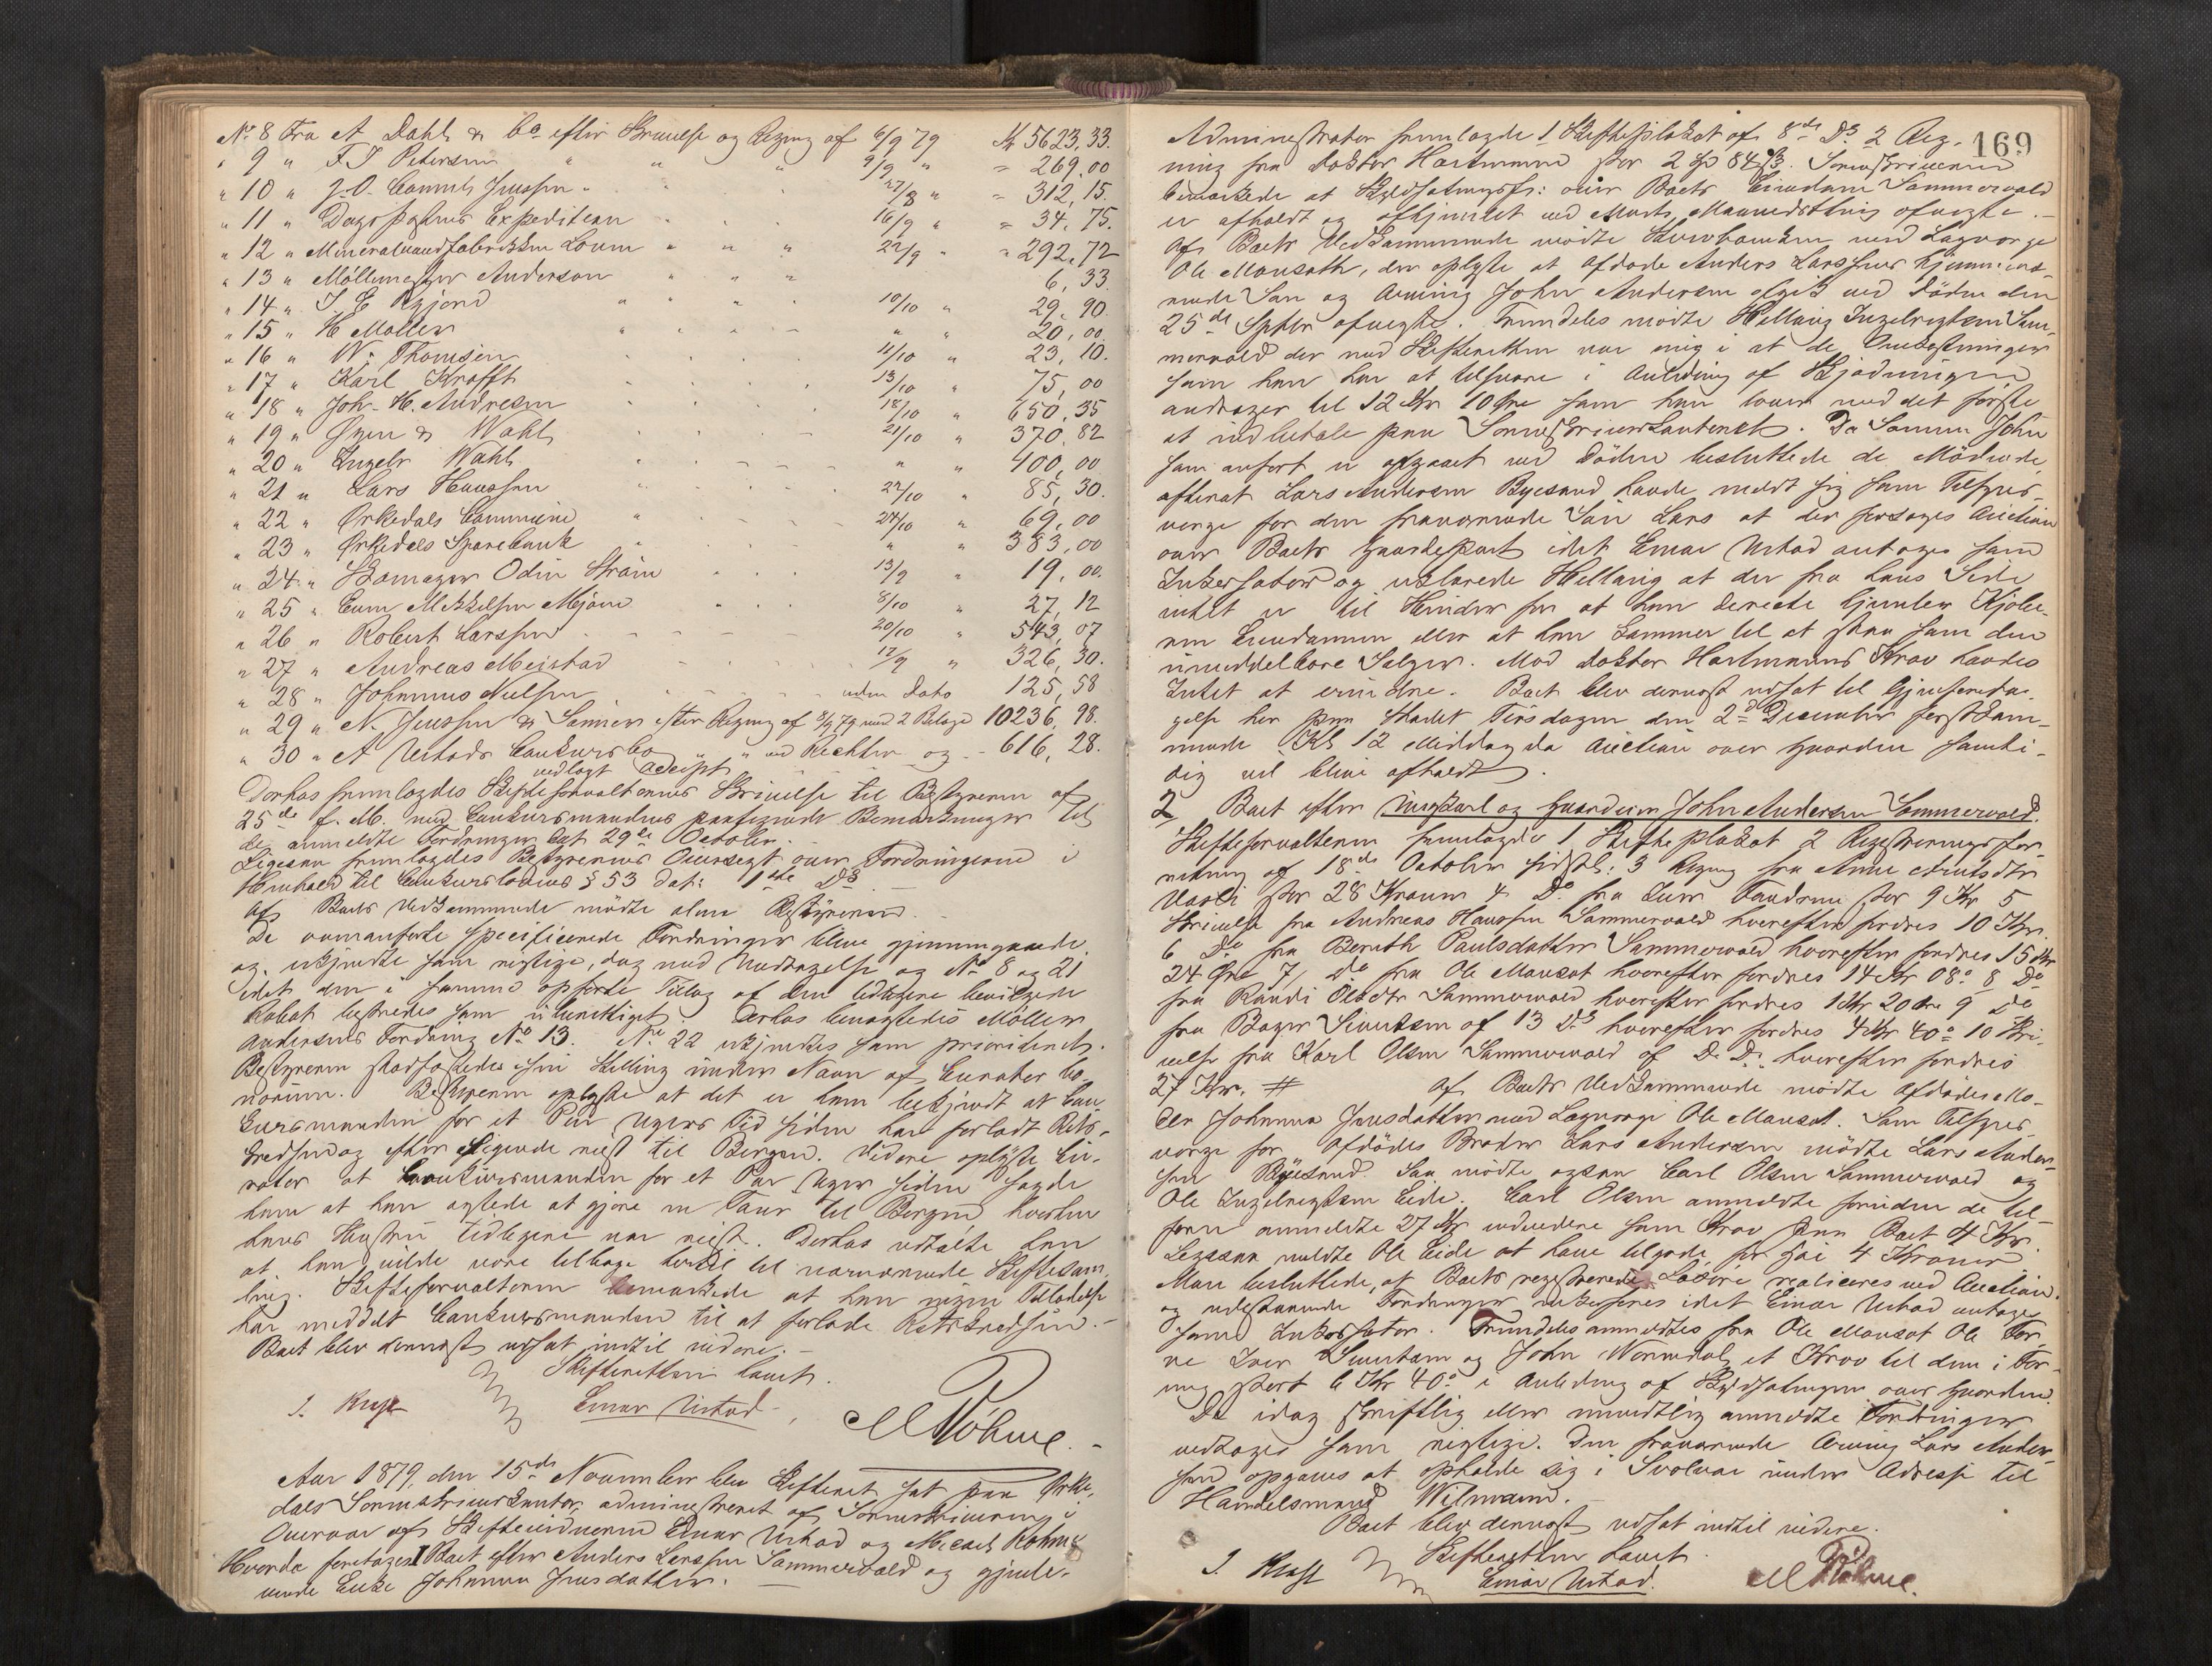 No 8 Fra A Dahl & Co efter Skrivelse og Regning af 6/9 79 Kr 5623,33.
" 9 " F. J Petersen " " " 9/9 " = 269,00
" 10 " J. O. Jenssen " 27/8 " = 312,15.
" 11 " Dagspostens Expedition 16/9 " = 34,75.
" 12 " Mineralvandfabrikken Loum " " " 22/9 " = 292,72
" 13 " Møllemester Anderson " " " 6,33.
" 14 " J. E " 10/10 " 29,90.
" 15 " H Møller " " " 20,00
" 16 " W. Thomsen 11/10 " 23,10.
" 17 " Karl Krafft 13/10 " 75,00
" 18 " Joh. H. Andresen 18/10 " 650,35
" 19 " & Wahl 21/10 " 370,82
" 20 " Engelr Wahl " " 400,00
" 21 " Lars Hanssen 22/10 " 85,30.
" 22 " Ørkedals Commune 24/10 " 69,00
" 23 " Ørkedals Sparebank " " 383,00
" 24 " Skomager Odin Strøm 13/9 " 19,00.
" 25 " Mikkelsen 8/10 " 27,12
" 26 " Robert Larssen 20/10 " 543,07
" 27 " Andreas Mejstad 17/9 " 326,30.
" 28 " Johannes Nielsen uden Dato 125,58
" 29 " N. Jenssen & Sønner efter Regning af 8/9 79 med 2 Bilage 10236,98.
" 30 " A Ustads Concursbo " " ved Richter og - 616,28.
vedlagt Adcipt
Derhos fremlagdes Skifteforvalterens Skrivelse til Bestyreren af
25de f. M. med Concursmandens paategnede Bemærkninger til
de anmeldte Fordringer dat 29de October.
Ligesaa fremlagdes Bestyrerens Oversigt over Fordringerne i
Henhold til Concurslovens § 53 dat: 1ste Ds.
Af Boets Vedkommende mødte alene Bestyreren.
De ovenanførte specificerede Fordringer bleve gjennemgaaede
og erkjendte som rigtige, dog med Undtagelse og No 8 og 21
idet den i samme opførte Tillæg af den tidligere bevilgede
Rabat bestredes som uberettiget. Derhos benegtedes Møller
Andersens Fordring No 13. No 22 erkjendtes som prioriteret.
Bestyreren stadfæstedes i sin Stilling under Navn af Curator bo-
norum. Bestyreren oplyste at det er ham bekjendt at Con-
cursmanden for et Par Ugers Tid siden har forladt Rets-
kredsen og efter Sigende reist til Bergen. Videre oplyste Cu-
rator at Concursmanden for et Par Uger siden sagde
ham at han agtede at gjøre en Tour til Bergen hvorhen
hans Hustru tidligere var reist. Derhos udtalte han
at han vilde være tilbage hertil til nærværende Skiftesam-
ling. Skifteforvalteren bemærkede at han ingen Tilladelse
har meddelt Concursmanden til at forlade Retskredsen. -
Boet blev dernæst udsat indtil videre. -
Skifteretten hævet.
J. Kraft Einar Ustad. M Köhme.
Aar 1879, den 15de November blev Skifteret sat paa Ørke-
dals Sorenskriverkontor, administreret af Sorenskriveren i
Overvær af Skiftevidnerne Einar Ustad og Micael Köhme
Hvorda foretoges 1 Boet efter Anders Larssen Sommervold og gjenle-
vende Enke Johanna Jensdatter. -

169
Administrator fremlagde 1 Skifteplakat af 8de Ds 2 Reg-
ning fra Doktor Hartmann stor 2 Sp 84 s. Sorenskriveren
bemærkede at Skyldsætningsfr: over Boets Eiendom Sommervold
er afholdt og afhjemlet ved Marts Maanedsthing afvigte. -
Af Boets Vedkommende mødte Stervboenken med Laugværge
Ole Mansath, der oplyste at Afdøde Anders Larssens hjemmevæ-
rende Søn og Arving John Andersen afgik ved Døden den
25de Septbr afvigte. Fremdeles mødte Hellarig Ingebrigtsen Som-
mervold der med Skifteretten var enig i at de Omkostninger
som han har at tilsvare i Anledning af Skjødningen
andrager til 12 Kr 10 Øre som han lover med det første
at indbetale paa Sorenskriverkontoret. Da Sønnen John
som anført er afgaaet ved Døden besluttede de Mødende
efterat Lars Andersen Byesand havde meldt sig som Tilsyns-
værge for den fraværende Søn Lars at der foretages Auction
over Boets Gaardepart idet Einar Ustad antages som
Inkassator og erklærede Hellarig at der fra hans Side
intet er til Hinder for at han directe hjemler Kjøbe-
ren Eiendommen eller at han kommer til at staa som den
umiddelbare Sælger. Mod Doktor Hartmanns Krav havdes
Intet at erindre. Boet blev dernæst udsat til Gjenforeta-
gelse her paa Stedet Tirsdagen den 2de December førstkom-
mende Kl 12 Middag da Auction over Gaarden samti-
dig vil blive afholdt.
2 Boet efter Ungkarl og Gaardeier John Andersen Sommervold.
Skifteforvalteren fremlagde 1 Skifteplakat 2 Registreringsfor-
retning af 18de October sidstl: 3 Regning fra Anne Arntsdtr
Vasli stor 28 Kroner 4 Do fra Iver Tandrum stor 9 Kr 5
Skrivelse fra Andreas Hansen Sommervold hvorefter fordres 10 Kr.
6 Do fra Bereth Paulsdatter Sommervold hvorefter fordres 15 Kr
24 Øre 7, Do fra Ole Mansat hvorefter fordres 14 Kr 08o 8 Do
fra Randi Olsdtr Sommervold hvorefter fordres 1 Kr 20 Øre 9 Do
fra Bager Sivertsen af 13 Ds hvorefter fordres 4 Kr 40o 10 Skri-
velse fra Karl Olsen Sommervold af D. D. hvorefter fordres
27 Kr. # Af Boets Vedkommende mødte Afdødes Mo-
der Johanna Jensdatter med Laugværge Ole Mansat. Som Tilsyns-
værge for Afdødes Broder Lars Andersen mødte Lars Ander-
sen Byesand. Saa mødte ogsaa Carl Olsen Sommervold og
Ole Ingebrigtsen Eide. Carl Olsen anmeldte foruden de til-
foran anmeldte 27 Kr endvidere som Krav paa Boet 4 Kr.
Ligesaa meldte Ole Eide at have tilgode for Høi 4 Kroner
Man besluttede, at Boets registrerede Løsøre realiceres ved Auction.
og udestaaende Fordringer inkasseres idet Einar Ustad antages
som Inkassator. Fremdeles anmeldtes fra Ole Mansat Ole For-
ve Iver Sivertsen og John Wormdal et Krav til dem i For-
ening stort 6 Kr 40o i Anledning af Skyldsætningen over Gaarden.
De idag skriftlig eller mundtlig anmeldte Fordringer
vedtages som rigtige. Den fraværende Arving Lars Ander-
sen opgaves at opholde sig i Svolvær under Adresse til
Handelsmand Wilmann. -
Boet blev dernæst udsat indtil videre.
Skifteretten hævet.
J. Kraft Einar Ustad. M Köhme.